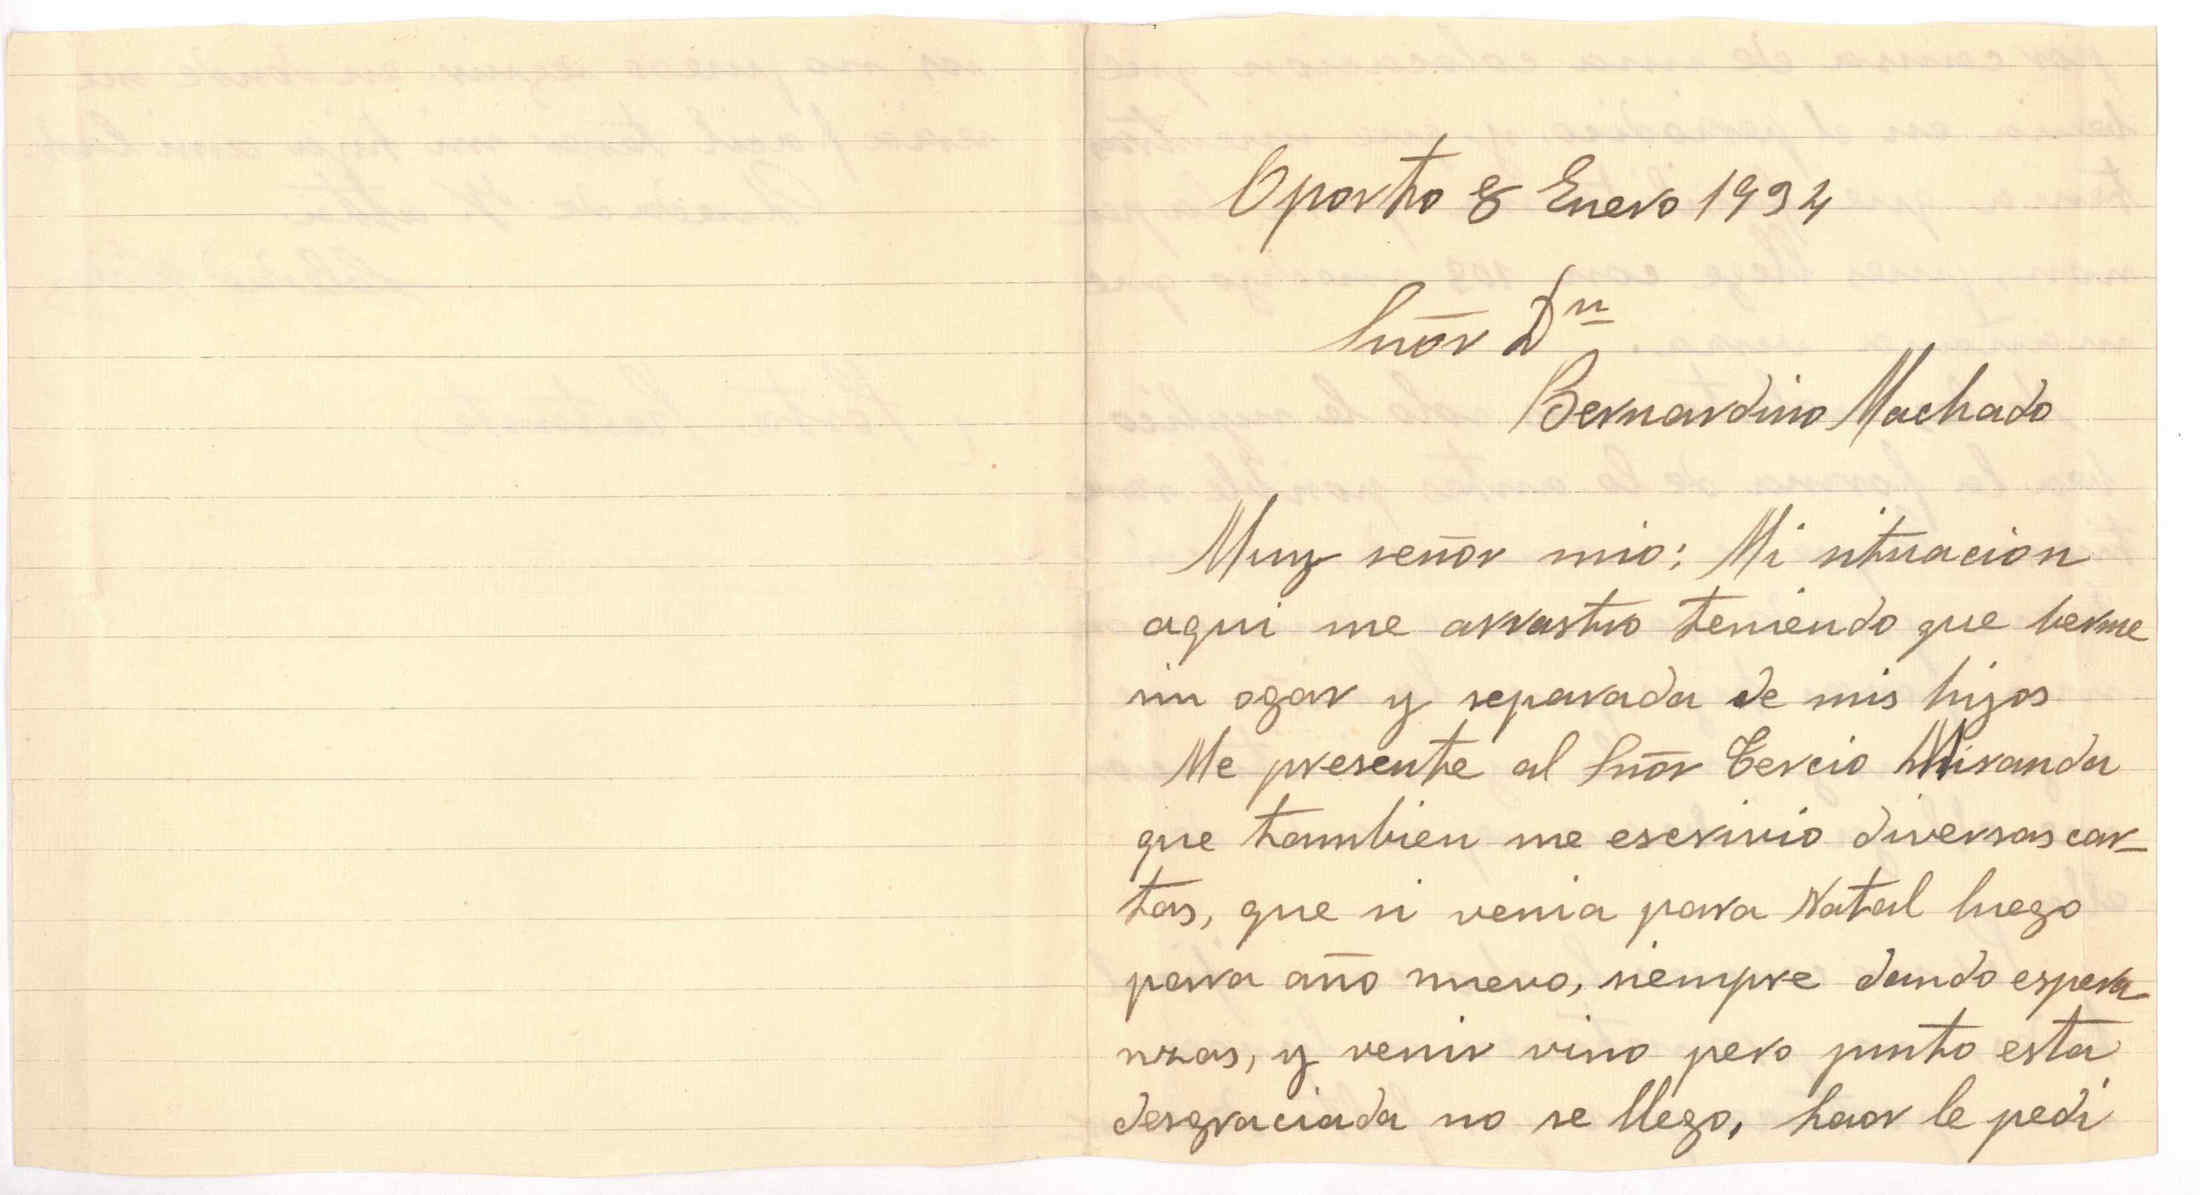 Oporto 8 Enero 1934
Señor Dn
Bernardino Machado
Muy señor mio: Mi situacion
aqui me arrastro teniendo que berme
sin ogar y separada de mis hijos
Me presente al Señor Tercio Miranda
que tambien me escrivio diversas car-
tas, que si venia para Natal luego
para año nuevo, siempre dando espera
nzas, y venir vino pero junto esta
desgraciada no se llego, haor le pedi